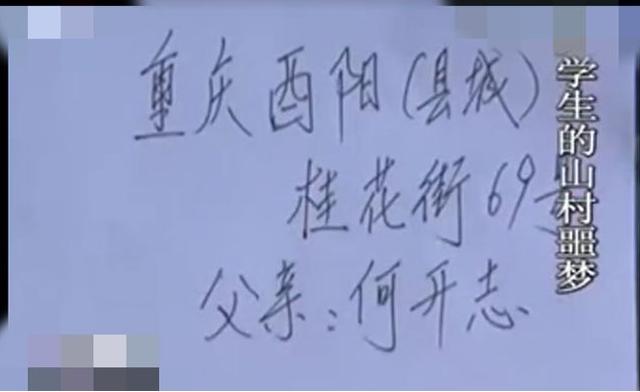 重庆酉阳(县城)
桂花街69号
父亲:何开志
学生的山村噩梦